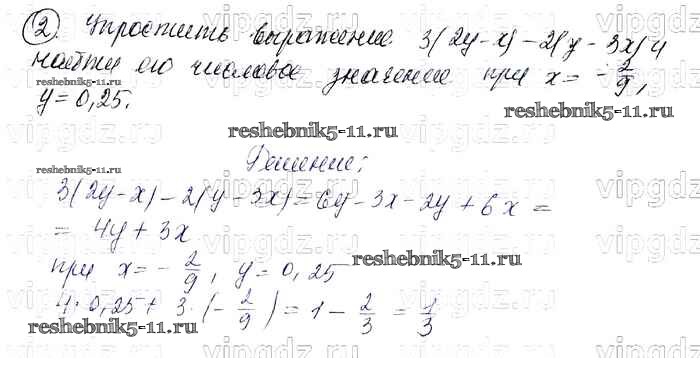 2. Упростить выражение 3(2y-x)-2(y-3x) и
найти его числовое значение при x = -2/9,
y = 0,25.
reshebnik5-11.ru
reshebnik5-11.ru
reshebnik5-11.ru
Решение:
reshebnik5-11.ru
3(2y-x)-2(y-3x)=6y-3x-2y+6x=
= 4y+3x
при x=-2/9, y=0,25
reshebnik5-11.ru
4·0,25+3·(-2/9)=1-2/3=1/3
reshebnik5-11.ru
reshebnik5-11.ru
vipgdz.ru